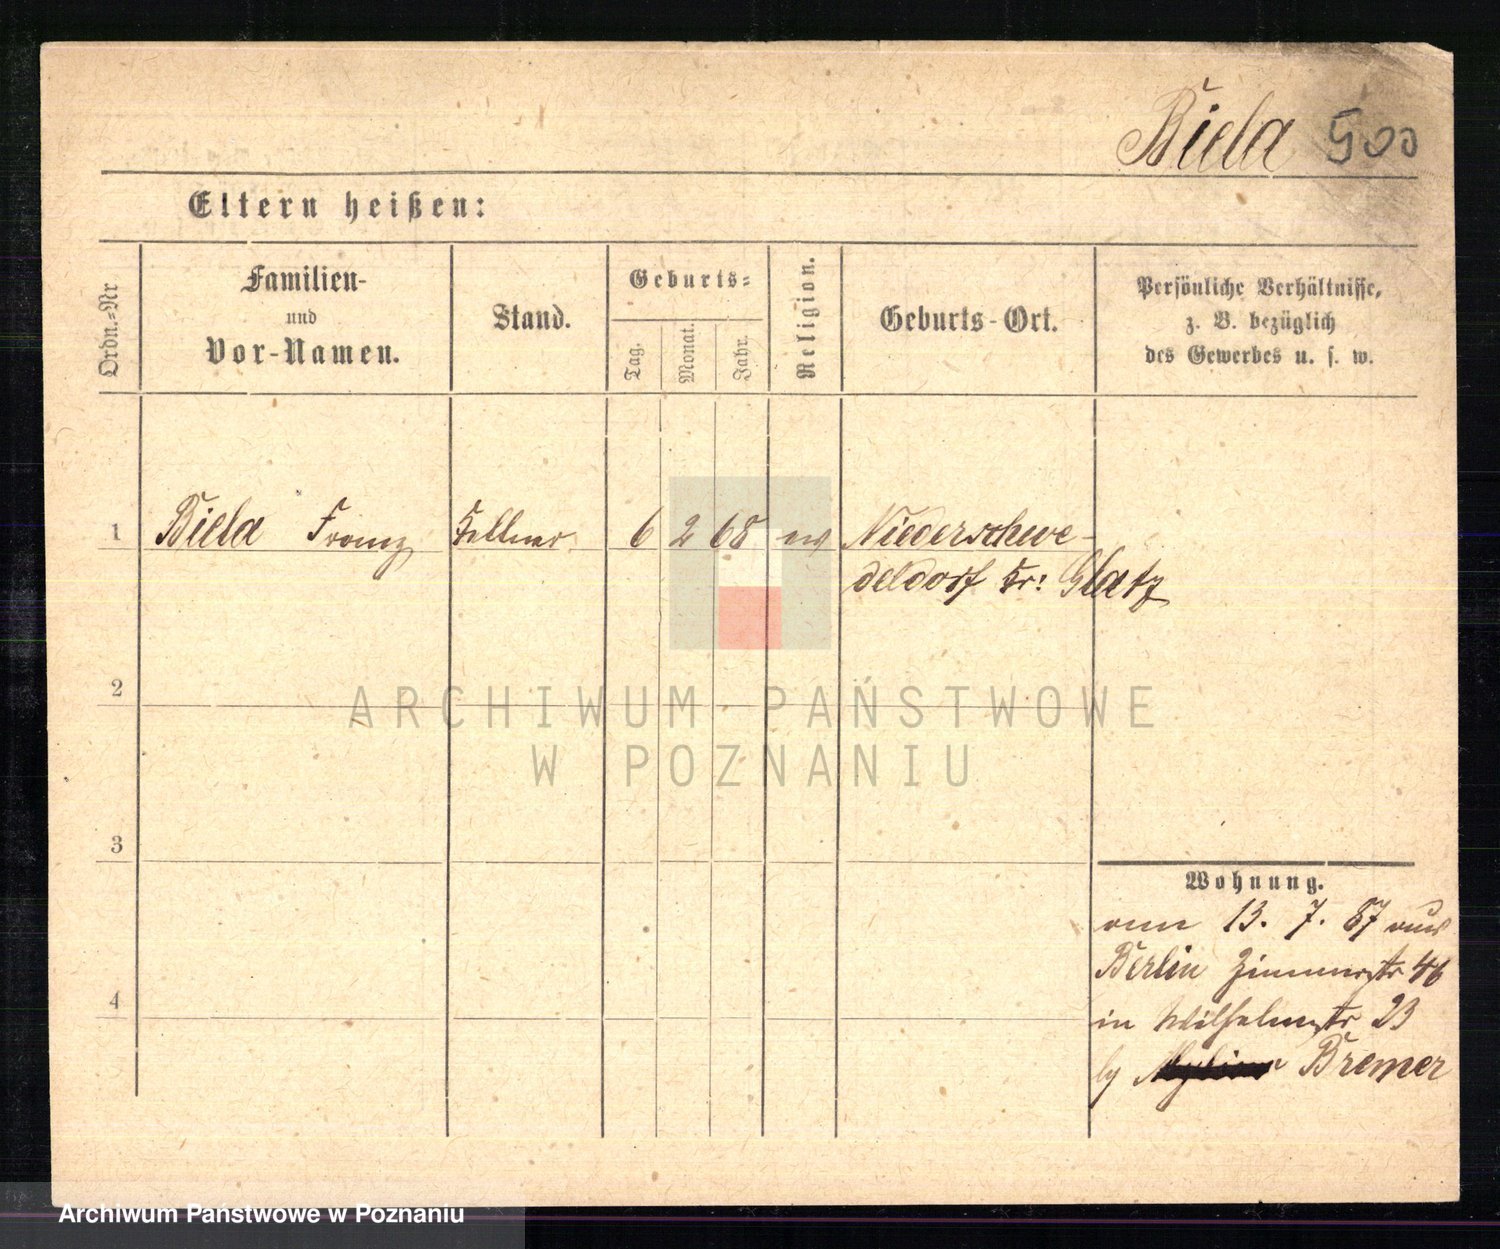 Biela 500
Eltern heißen:
Ordn.-Nr
Familien-
und
Vor-Namen.
Stand.
Geburts-
Tag.
Monat.
Jahr.
Religion.
Geburts-Ort.
Persönliche Verhältnisse,
z. B. bezüglich
des Gewerbes u. s. w.
1 Biela Franz Kellner 6 2 68 Niederschwe-
deldorf Kr: Glatz
2
ARCHIWUM PAŃSTWOWE
W POZNANIU
3
Wohnung.
13. 7. 87 aus
Berlin Zimmerstr 46
4
in Wilhelmstr 23
Bremer
Archiwum Państwowe w Poznaniu